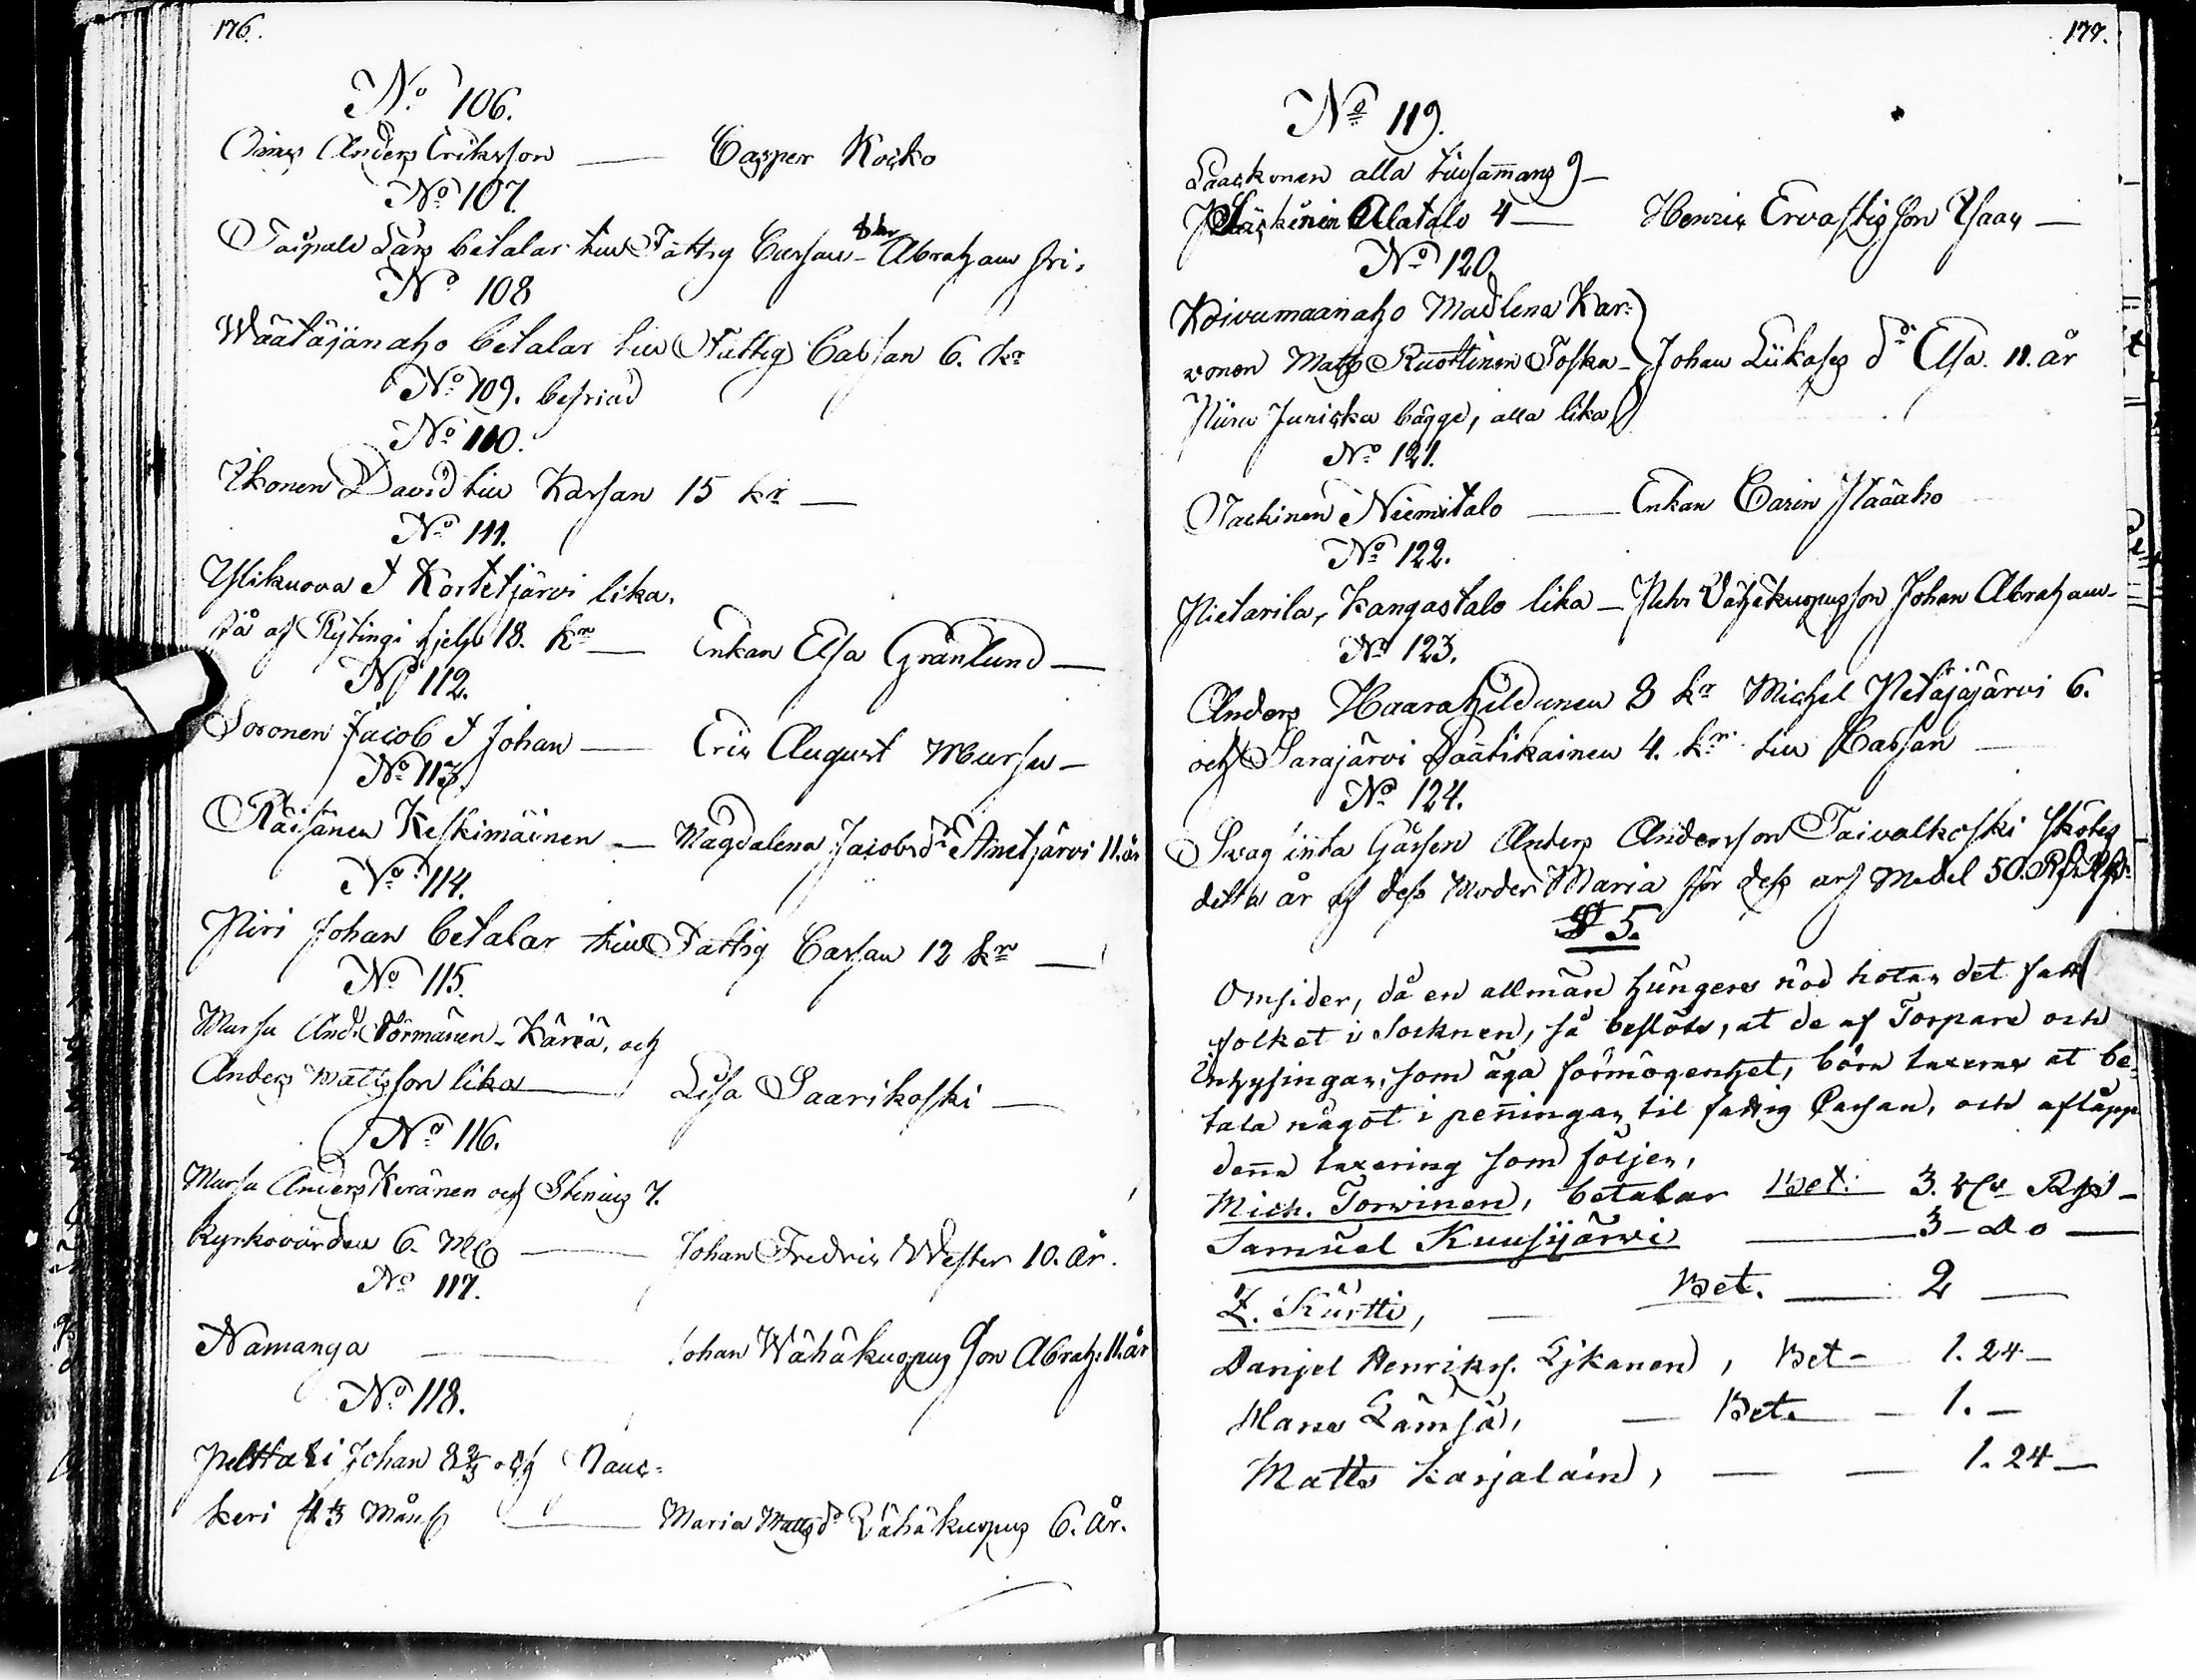 176.
No 106.
Anders Eriksson — Casper Koisko
No 107.
Taipale Lars betalar till Fattig Cassan 8 kr Abraham fri.
No 108
Wäätäjänaho betalar till Fattig Cassan 6. kr
No 109. befriad
No 110.
Ikonen David till Kassan 15 kr —
No 111.
Ylikuova & Kortetjärvi lika,
få af Rytingi hjelp 18. kr — Enkan Elsa Granlund —
No 112.
Soronen Jacob & Johan — Eric August Mursu —
No 113.
Räisänen Keskimäinen — Magdalena Jacobsdr Ainetjärvi 11. år
No 114.
Piri Johan betalar till Fattig Cassan 12 kr —
No 115.
Mursu And. Törmänen - Käriä, och
Anders Mattsson lika — Lisa Saarikoski —
No 116.
Mursu Anders Keränen och Stenius 7.
Kyrkovärden 6. — Johan Fredric Wester 10. år.
No 117.
Nämänga — Johan Wähäkuopus Son Abrah. 11. år
No 118.
Pelttari Johan och Nauc-
keri Mans — Maria Mattsdr Wähäkuopus 6. år.
177.
No 119.
Laackonen alla tillsammans 9 —
Alatalo 4 — Henric Ervastis Son Isaac —
No 120.
Koivumaanaho Madlena Kar-
vonen Matts Ruottinen Toska — Johan Liikases dr Elsa. 11. år
Juricka bägge, alla lika
No 121.
Tackinen Niemitalo — Enkan Carin
No 122.
Pietarila, Kangastalo lika — Pehr Vähäkuopus son Johan Abraham —
No 123.
Anders Haarahildunen 8 kr Michel Petäjäjärvi 6.
och Sarajärvi Päätikainen 4. kr till Cassan —
No 124.
Swag inta Gåssen Anders Andersson Taivalkoski skötes
detta år af dess Moder Maria för dess arf Medel 50.
§ 5.
Omsider, då en allmän hungers nöd hotar det fatt
folket i Socknen, så beslöts, at de af Torpare och
inhysingar, som äga förmögenhet, böra taxeras at be-
tala något i penningar til fattig Cassan, och aflopp
denna taxering som följer,
Mich. Torvinen, betalar Bet: 3.
Samuel Kuusijärvi — 3 — do —
Z. Kurtti, — Bet. — 2 —
Danjel Henrikss. Lykanen, Bet — 1. 24 —
Hans Lämsä, — Bet. — 1. —
Matts Karjalain, — 1. 24 —